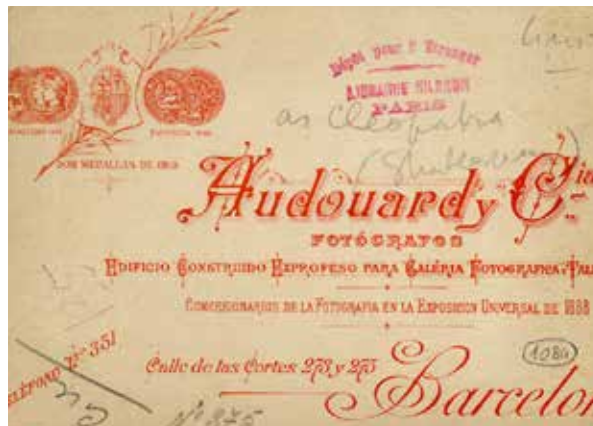 Dépôt pour l'Etranger
LIBRAIRIE NILSSON
PARIS
as Cleopatra
(Shakespeare)
DOS MEDALLAS DE ORO
Audouard y Cia
FOTÓGRAFOS
EDIFICIO CONSTRUIDO EXPROFESO PARA GALÉRIA FOTOGRAFICA Y TAL
CONCESIONARIOS DE LA FOTOGRAFIA EN LA EXPOSICION UNIVERSAL DE 1888
1084
TELÉFONO Nro 351
Calle de las Cortes 273 y 275
Barcelon
Nº 875